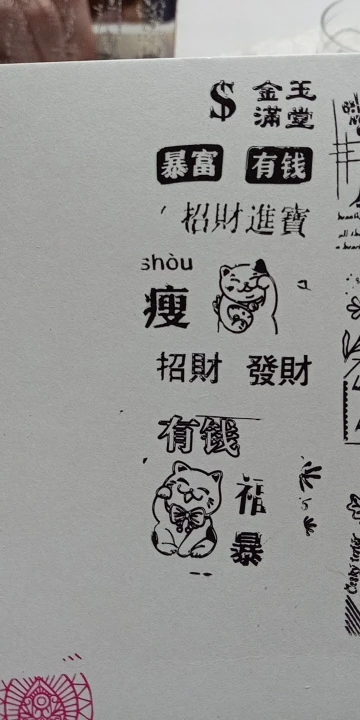 $ 金玉
滿堂
暴富 有钱
招財進寶
shòu
瘦
招財 發財
有钱
福
暴